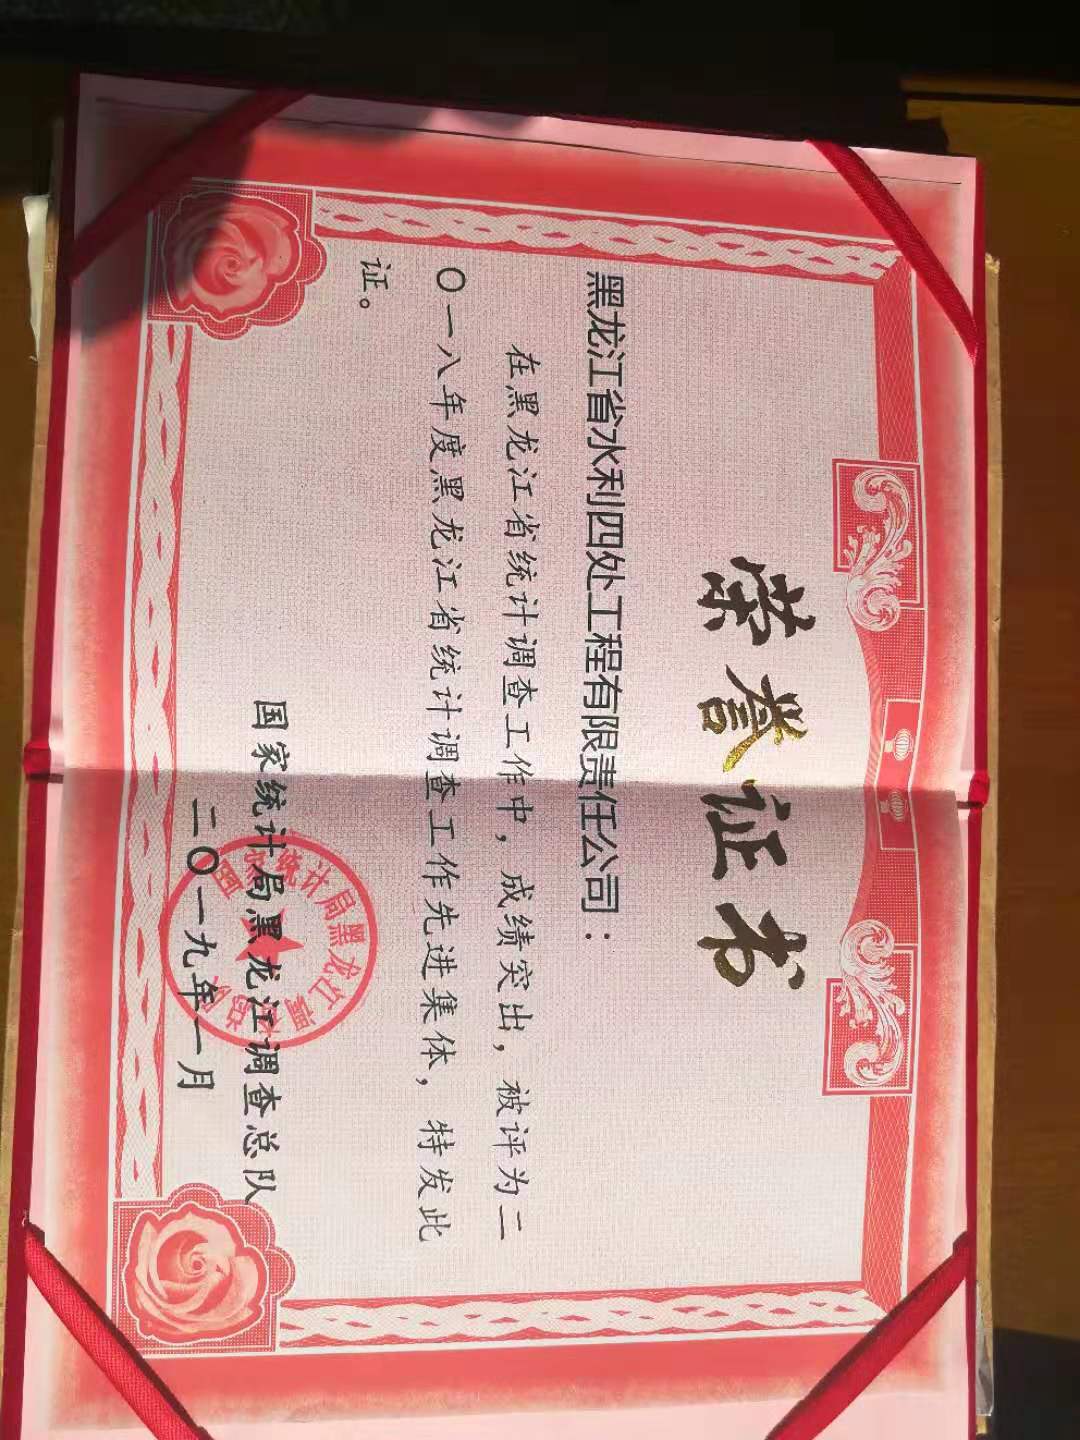 荣誉证书
黑龙江省水利四处工程有限责任公司：
在黑龙江省统计调查工作中，成绩突出，被评为二
〇一八年度黑龙江省统计调查工作先进集体，特发此
证。
国家统计局黑龙江调查总队
二〇一九年一月
国家统计局黑龙江调查总队